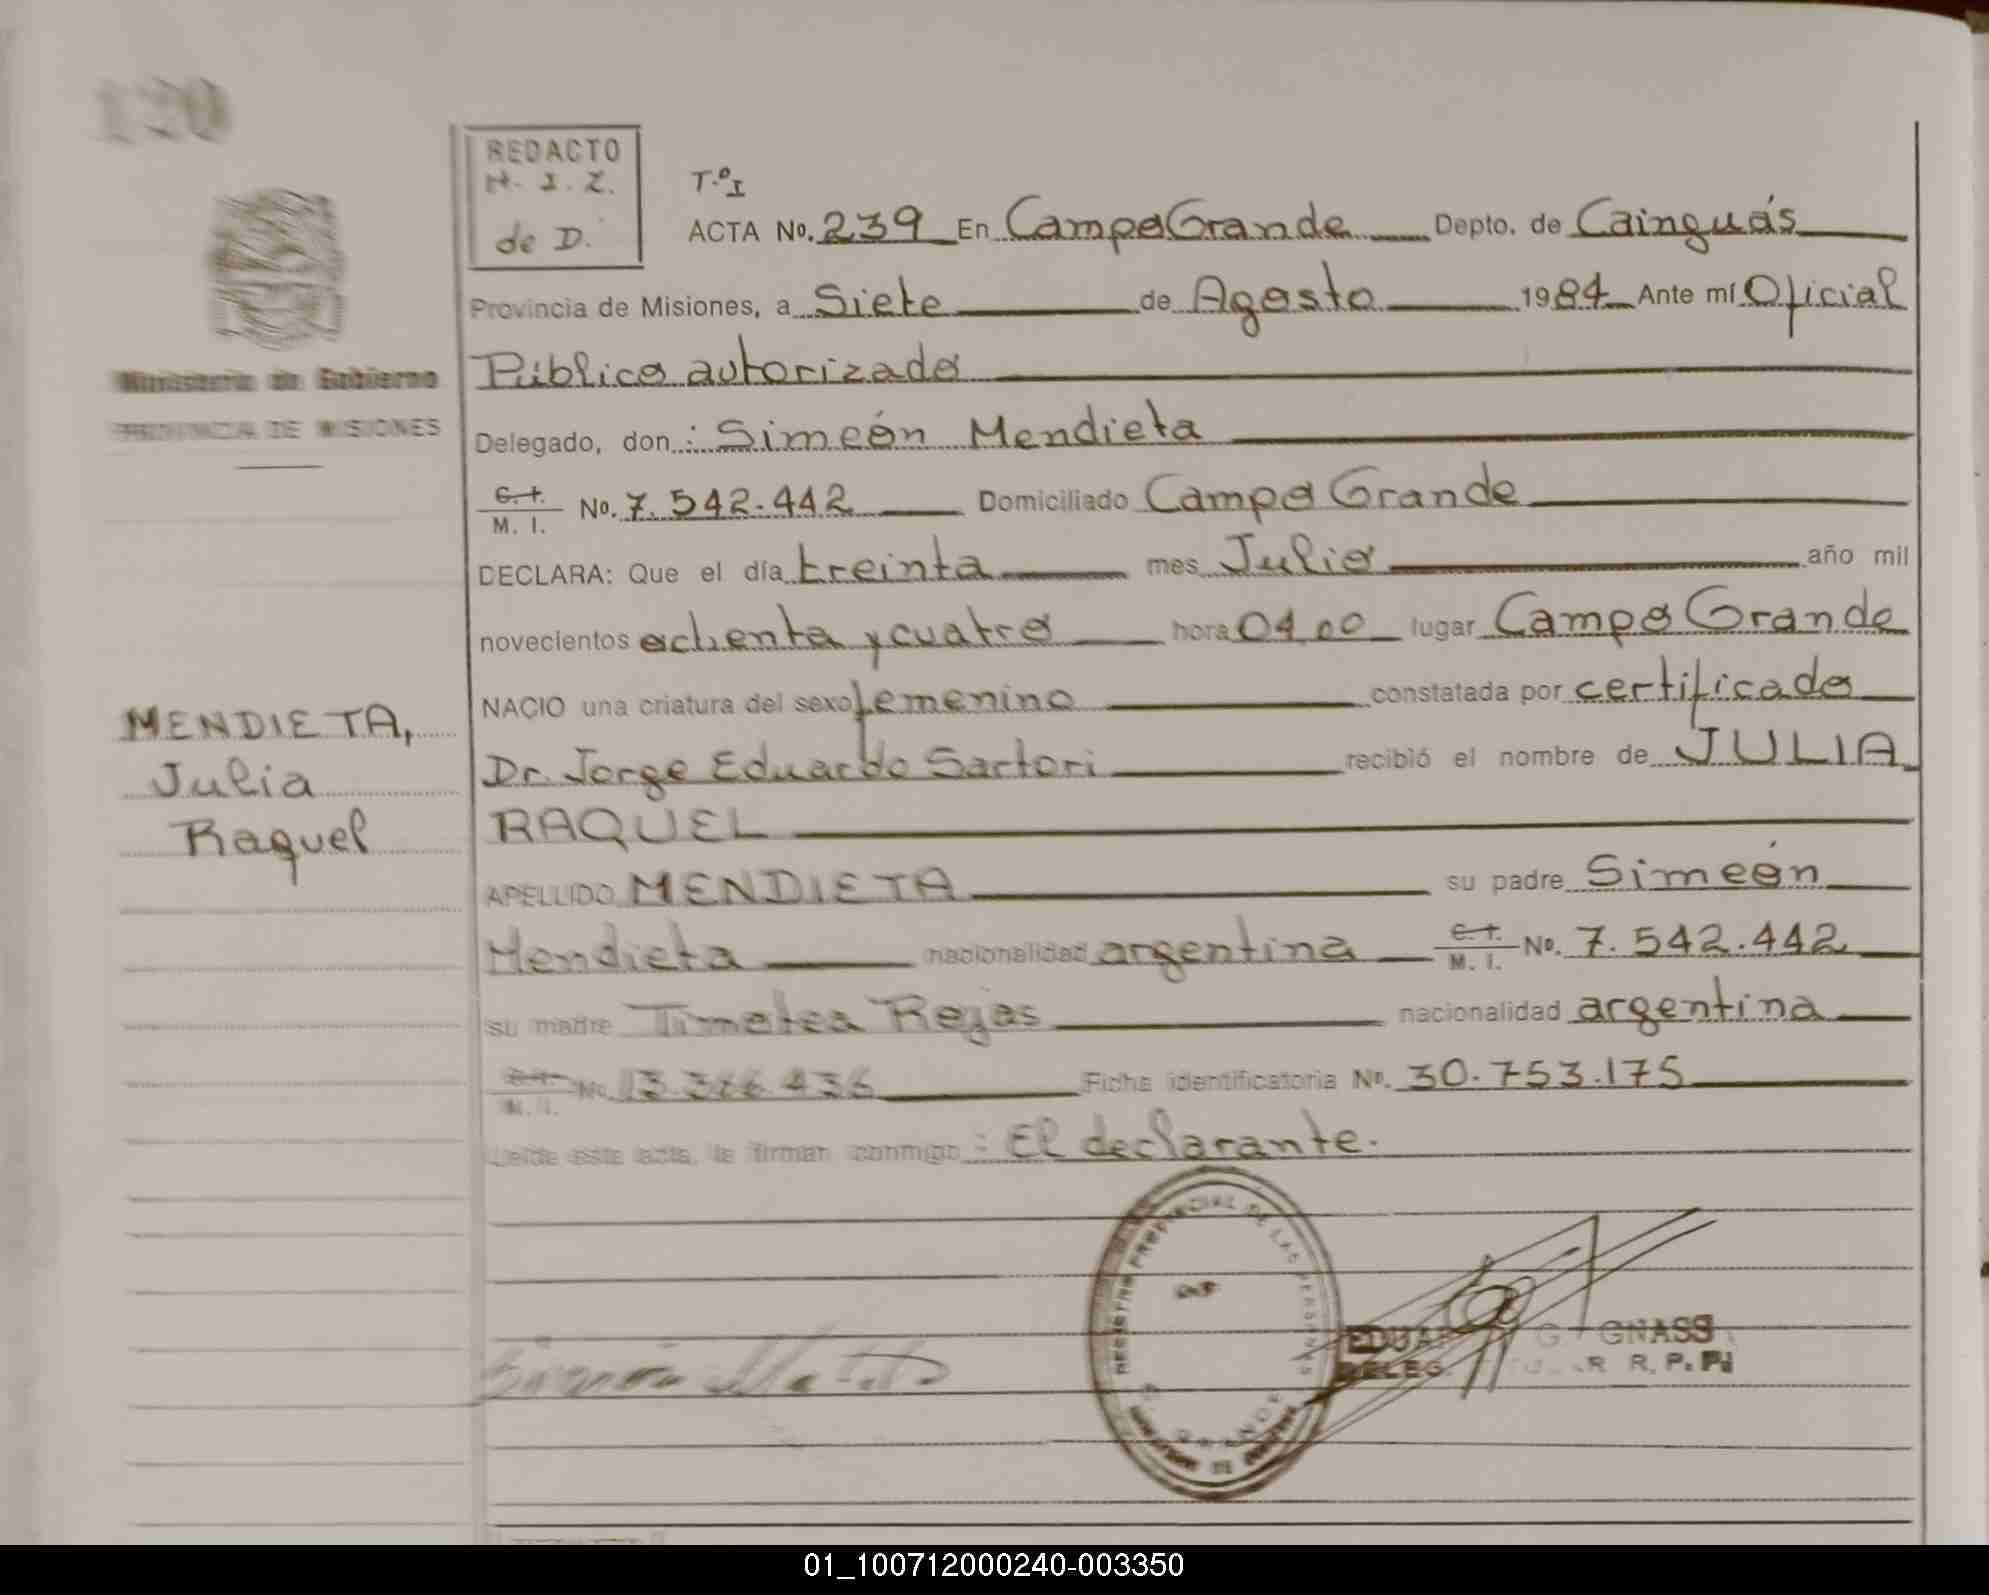 120
REDACTO
N. I. Z.
de D.
T.º I
ACTA Nº. 239 En Campo Grande Depto. de Cainguás
Provincia de Misiones, a Siete de Agosto 1984 Ante mí Oficial
Público autorizado
Ministerio de Gobierno
PROVINCIA DE MISIONES
Delegado, don: Simeón Mendieta
C. I.
M. I. Nº. 7.542.442 Domiciliado Campo Grande
DECLARA: Que el día treinta mes Julio año mil
novecientos ochenta y cuatro hora 04,00 lugar Campo Grande
NACIO una criatura del sexo femenino constatada por certificado
MENDIETA,
Julia
Raquel
Dr. Jorge Eduardo Sartori recibió el nombre de JULIA
RAQUEL
APELLIDO MENDIETA su padre Simeón
Mendieta nacionalidad argentina C. I.
M. I. Nº. 7.542.442
su madre Timotea Rojas nacionalidad argentina
C. I.
M. I. Nº. 13.3 6.436 Ficha identificatoria Nº. 30.753.175
Leída este acta, la firman conmigo: El declarante.
REGISTRO PROVINCIAL DE LAS PERSONAS
GRANDE
EDUAR GNASS
DELEG R R. P. P.
01_100712000240-003350